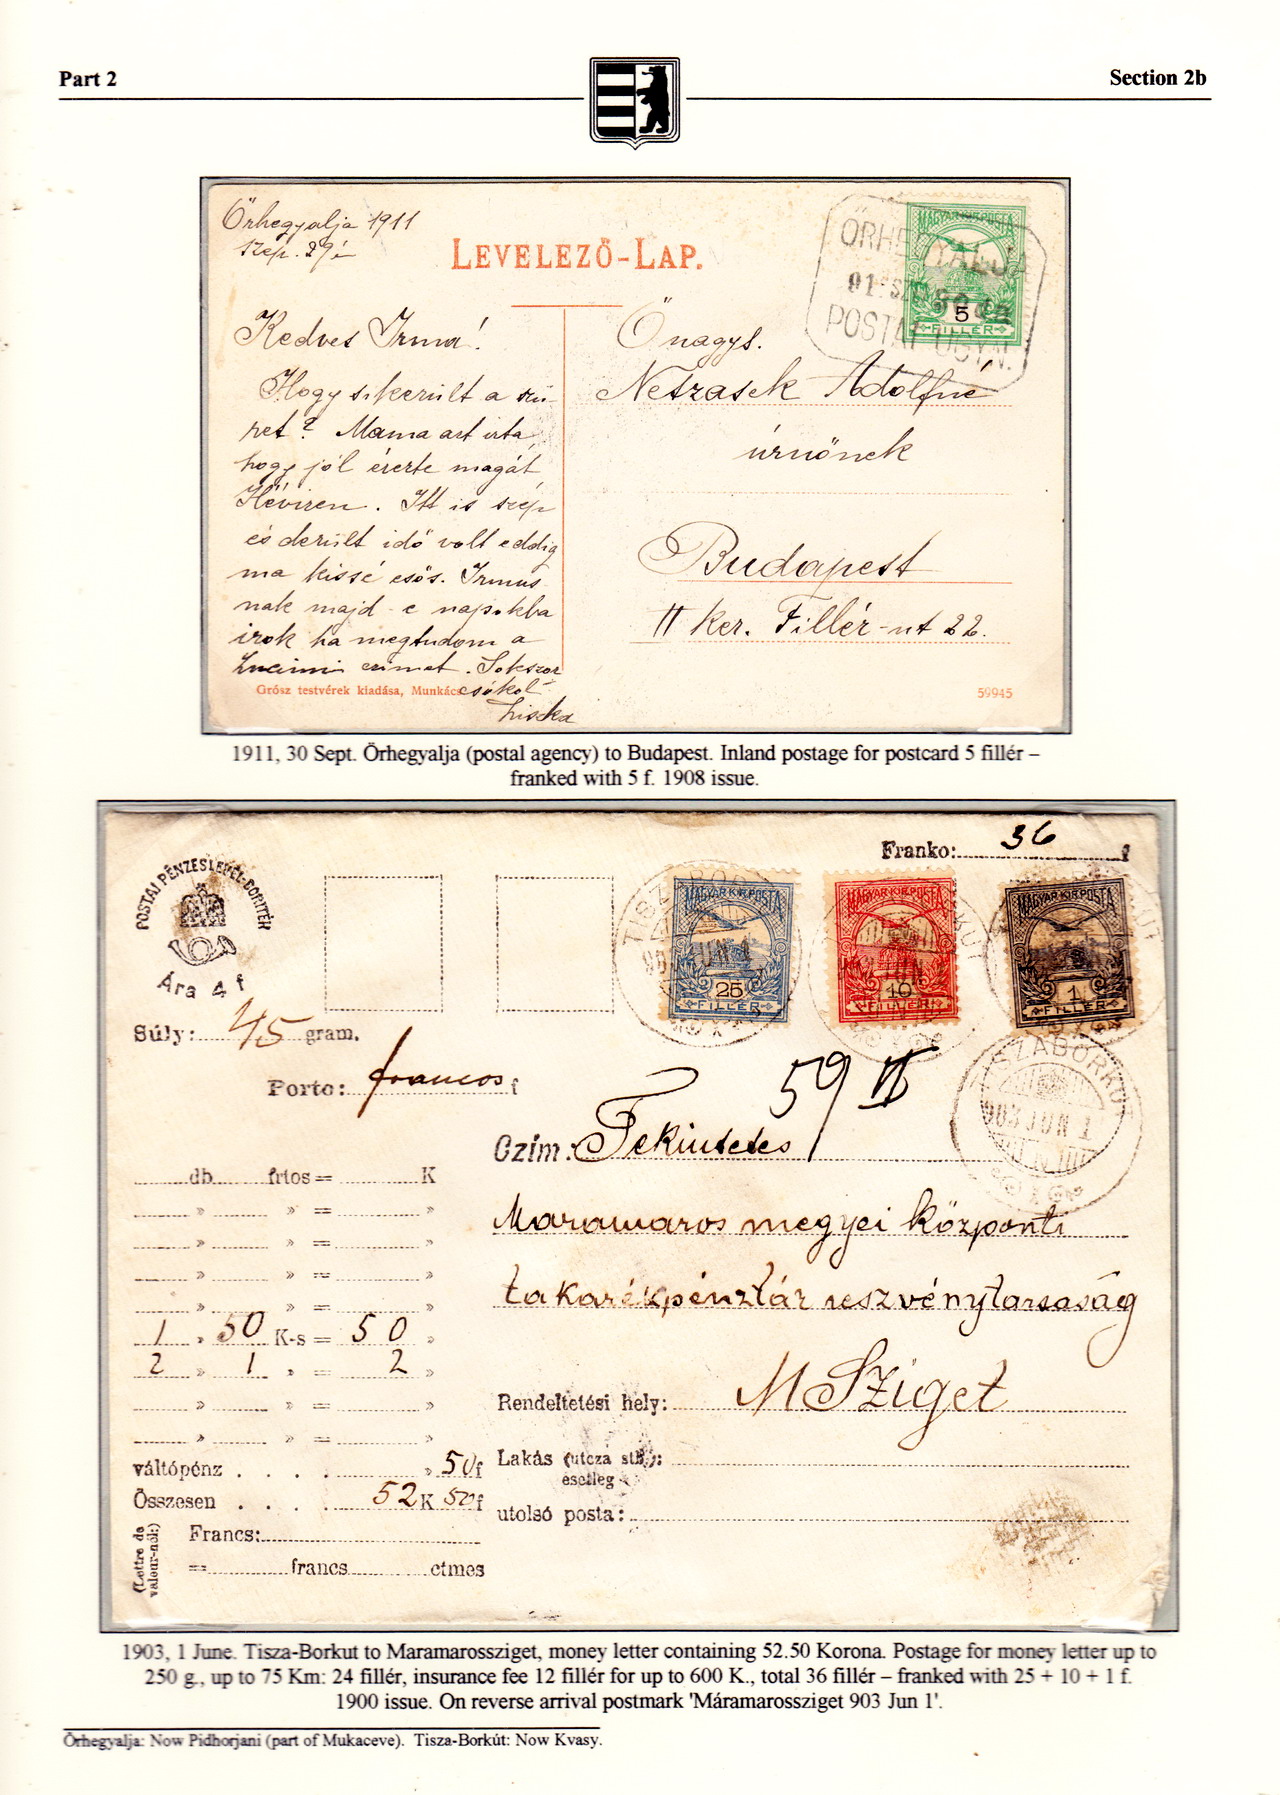 Part 2
Section 2b
Őrhegyalja 1911
szep. 29én
LEVELEZŐ-LAP.
ŐRHEGYALJA
POSTAI ÜGYN.
MAGYAR KIR. POSTA
5
FILLÉR
Kedves Irma!
Hogy sikerült a szü-
ret? Mama azt irta,
hogy jól érezte magát
Hévizen. Itt is szép
és derült idő volt eddig
ma kissé esős. Irmus
nak majd e napokba
irok ha megtudom a
czimet. Sokszor
csókol
Őnagys.
Netzasek Adolfné
úrnőnek
Budapest
II ker. Fillér-ut 22.
Grósz testvérek kiadása, Munkács
59945
1911, 30 Sept. Örhegyalja (postal agency) to Budapest. Inland postage for postcard 5 fillér –
franked with 5 f. 1908 issue.
POSTAI PÉNZESLEVÉL-BORITÉK
Ára 4 f
Franko: 36 f
MAGYAR KIR. POSTA
25
FILLÉR
MAGYAR KIR. POSTA
10
FILLÉR
MAGYAR KIR. POSTA
1
FILLÉR
TISZABORKUT
903 JUN 1
Súly: 45 gram.
Porto: francos f
59 II
Czim: Tekintetes
Maramaros megyei központi
takarékpénztár reszvénytarsaság
M Sziget
db frtos = K
» » = »
» » = »
» » = »
» » = »
1 » 50 K-s = 50 »
2 » 1 » = 2 »
» » = »
» » = »
váltópénz . . . . » 50 f
Összesen . . . . 52 K 50 f
Francs:
= francs ctmes
(Lettre de
valeur-nél:)
Rendeltetési hely:
Lakás (utcza stb.):
esetleg
utolsó posta:
1903, 1 June. Tisza-Borkut to Maramarossziget, money letter containing 52.50 Korona. Postage for money letter up to
250 g., up to 75 Km: 24 fillér, insurance fee 12 fillér for up to 600 K., total 36 fillér – franked with 25 + 10 + 1 f.
1900 issue. On reverse arrival postmark 'Máramarossziget 903 Jun 1'.
Örhegyalja: Now Pidhorjani (part of Mukaceve). Tisza-Borkút: Now Kvasy.